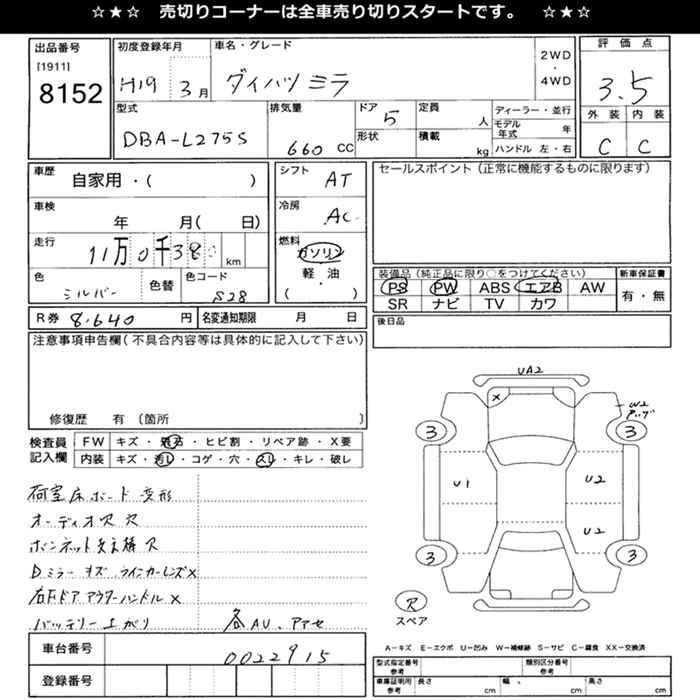 ☆★☆ 売切りコーナーは全車売り切りスタートです。 ☆★☆
出品番号
[1911]
8152
初度登録年月
H19 3月
車名・グレード
ダイハツ ミラ
2WD
・
4WD
評価点
3.5
外装 内装
C C
型式
DBA-L275S
排気量
660 CC
ドア 5
形状
定員 人
積載 kg
ディーラー・並行
モデル年式 年
ハンドル 左・右
車歴
自家用・( )
車検
年 月( 日)
走行
11万0千38 km
色
シルバー
色替
色コード
S28
シフト
AT
冷房
AC
燃料
ガソリン
軽・油
( )
セールスポイント(正常に機能するものに限ります)
装備品(純正品に限り○をつけてください)
PS PW ABS エアB AW
SR ナビ TV カワ
新車保証書
有・無
R券 8,640 円
名変通知期限 月 日
後日品
注意事項申告欄(不具合内容等は具体的に記入して下さい)
修復歴 有(箇所 )
検査員
記入欄
FW キズ・飛石・ヒビ割・リペア跡・X要
内装 キズ・汚レ・コゲ・穴・スレ・キレ・破レ
荷室床ボード変形
オーディオ穴
ボンネット支柱穴
Dミラーキズ ウインカーレンズ×
右Fドアアウターハンドル×
バッテリー上がり
各AU、アセ
車台番号
0022915
登録番号
UA2
X
W2
3 3
U1 U2
U2
3 3
スペア
A-キズ E-エクボ U-凹み W-補修跡 S-サビ C-腐食 XX-交換済
型式指定番号
参考
類別区分番号
参考
車庫証明用
参考
長さ cm
幅 cm
高さ cm